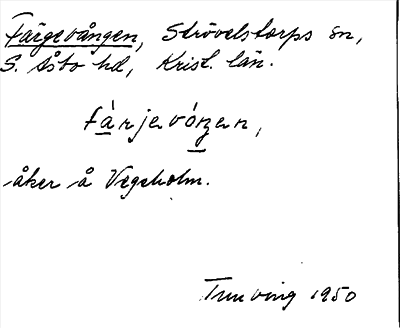 Färgevången, Strövelstorps sn,
S. Åsbo hd, Krist. län.
fàrjevóŋen,
åker å Vegeholm.
Tru Ving 1950